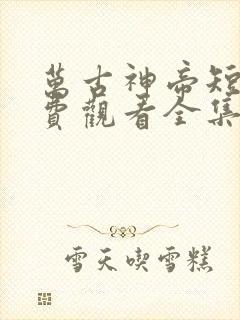 萬古神帝短
費觀看全集
雪天喫雪糕